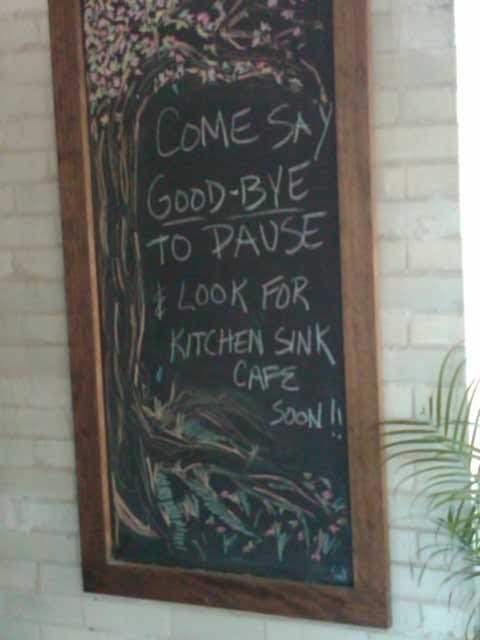 COME SAY
GOOD-BYE
TO PAUSE
& LOOK FOR
KITCHEN SINK
CAFE
SOON!!